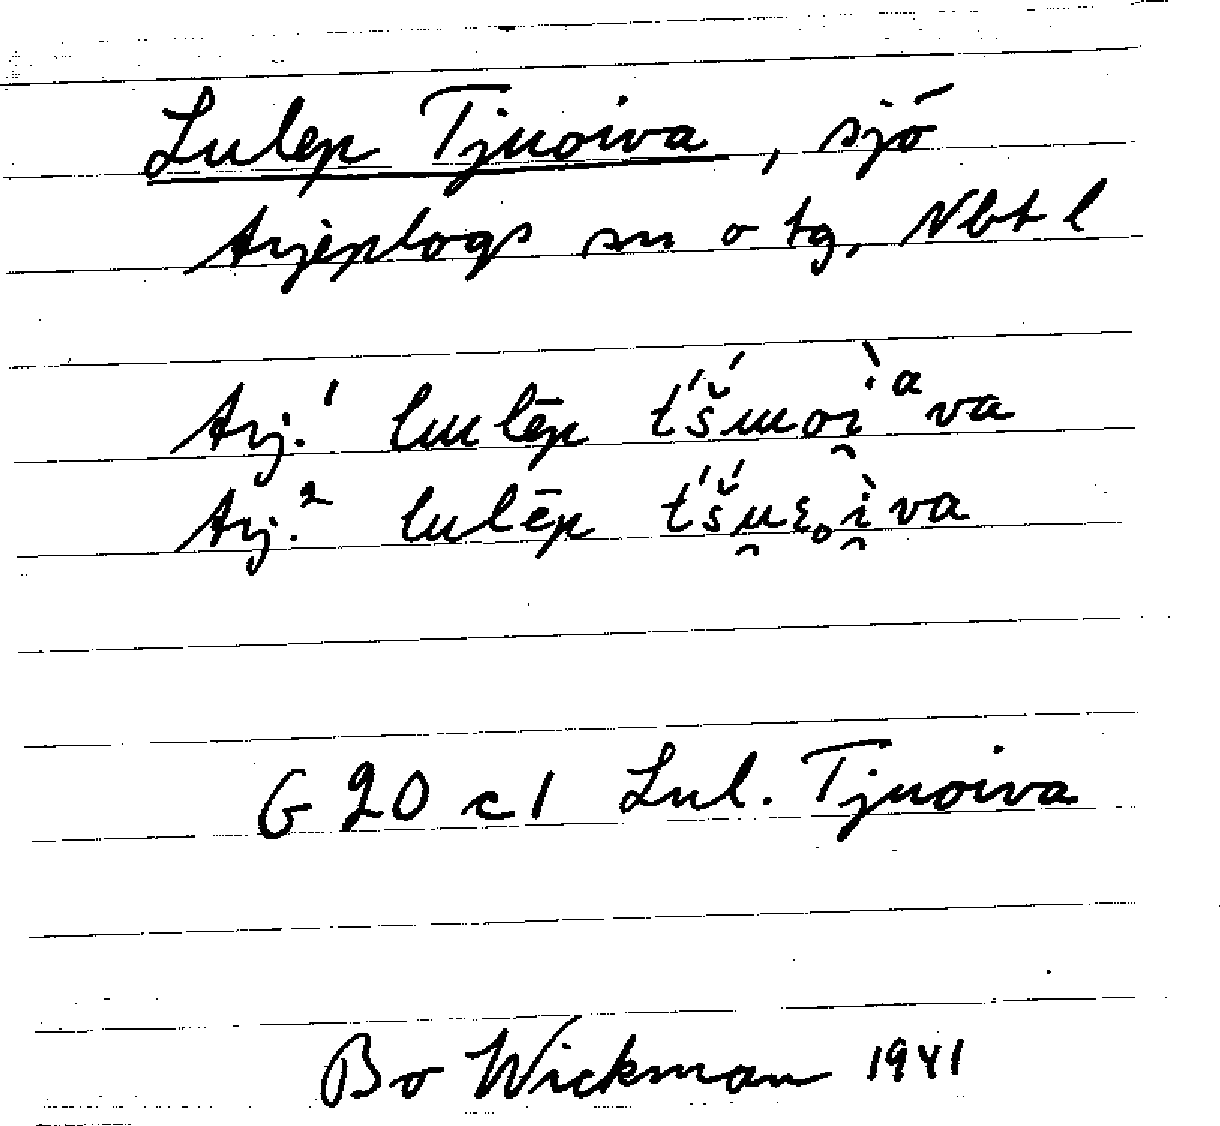 Lulep Tjuoiva, sjö
Arjeplogs sn o tg, Nbt l
Arj.¹ lulēp t́š́uoì̯ᵃva
Arj.² lulēp t́š́u̯ɛoì̯va
G 20 c 1 Lul. Tjuoiva
Bo Wickman 1941